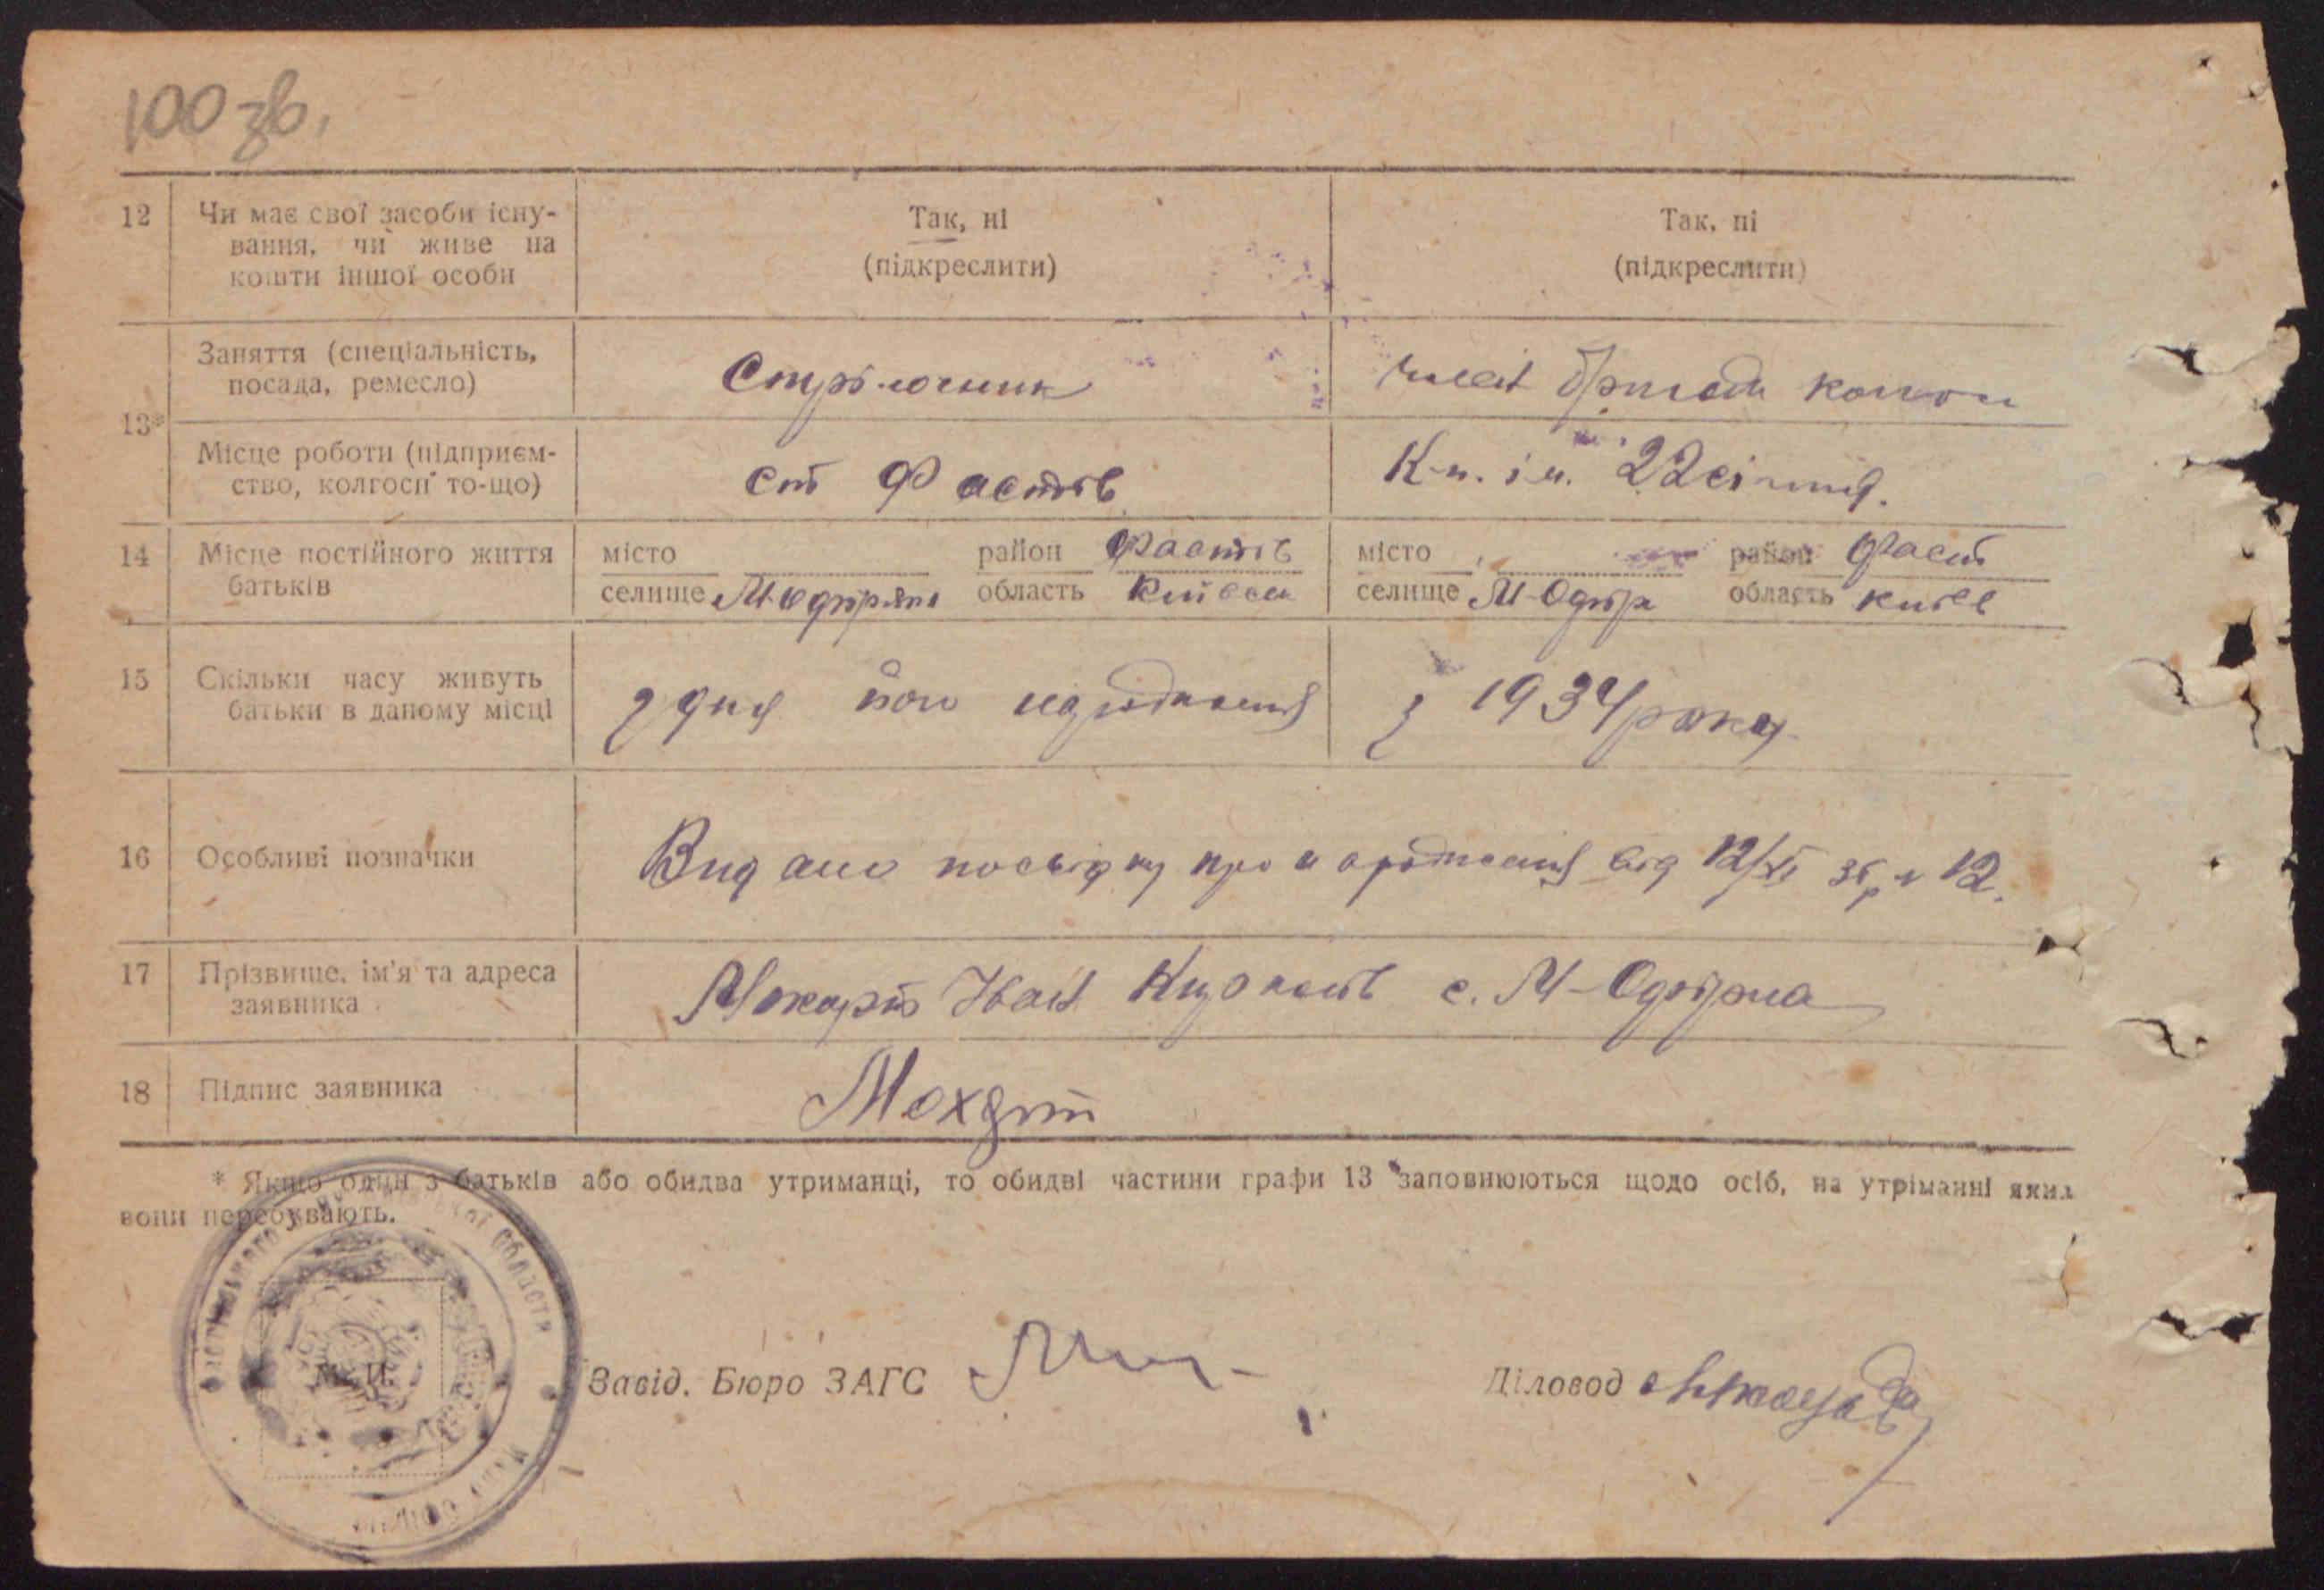 100 зв.
12 Чи має свої засоби існу-
вання, чи живе на
кошти іншої особи
Так, ні
(підкреслити)
Так, ні
(підкреслити)
13*
Заняття (спеціальність,
посада, ремесло)
Стрілочник
член бригади
Місце роботи (підприєм-
ство, колгосп то-що)
ст Фастів
К-п. ім. 22 січння.
14 Місце постійного життя
батьків
місто район Фастів
селище область
місто район Фаст
селище М-Офір область Київ
15 Скільки часу живуть
батьки в даному місці
з дня його народження
з 1934 року
16 Особливі позначки
Видано посвідку про народження від 12/XI 36 р № 12.
17 Прізвище, ім'я та адреса
заявника
Іван с. М-Офірна
18 Підпис заявника
* Якщо один з батьків або обидва утриманці, то обидві частини графи 13 заповнюються щодо осіб, на утріманні яких
вони перебувають.
області
М. П.
Завід. Бюро ЗАГС
Діловод